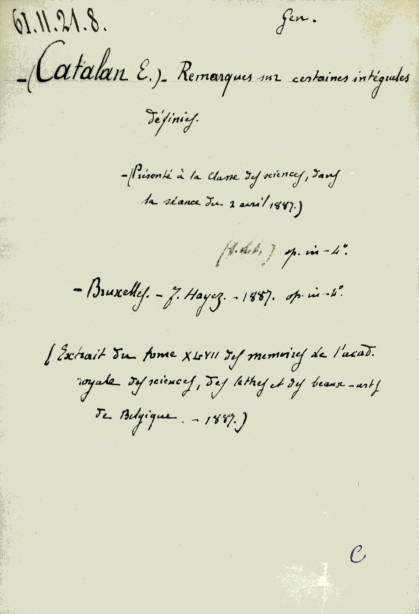 61.11.21.8.
Gen.
-(Catalan E.)- Remarques sur certaines intégrales
définies.
-(Présenté à la classe des sciences, dans
la séance du 2 avril 1887.)
op. in-4°.
- Bruxelles. - F. Hayez. - 1887. op. in-4°.
(Extrait du tome XLVII des memoires de l'acad.
royale des sciences, des lettres et des beaux-arts
de Belgique. - 1887.)
C